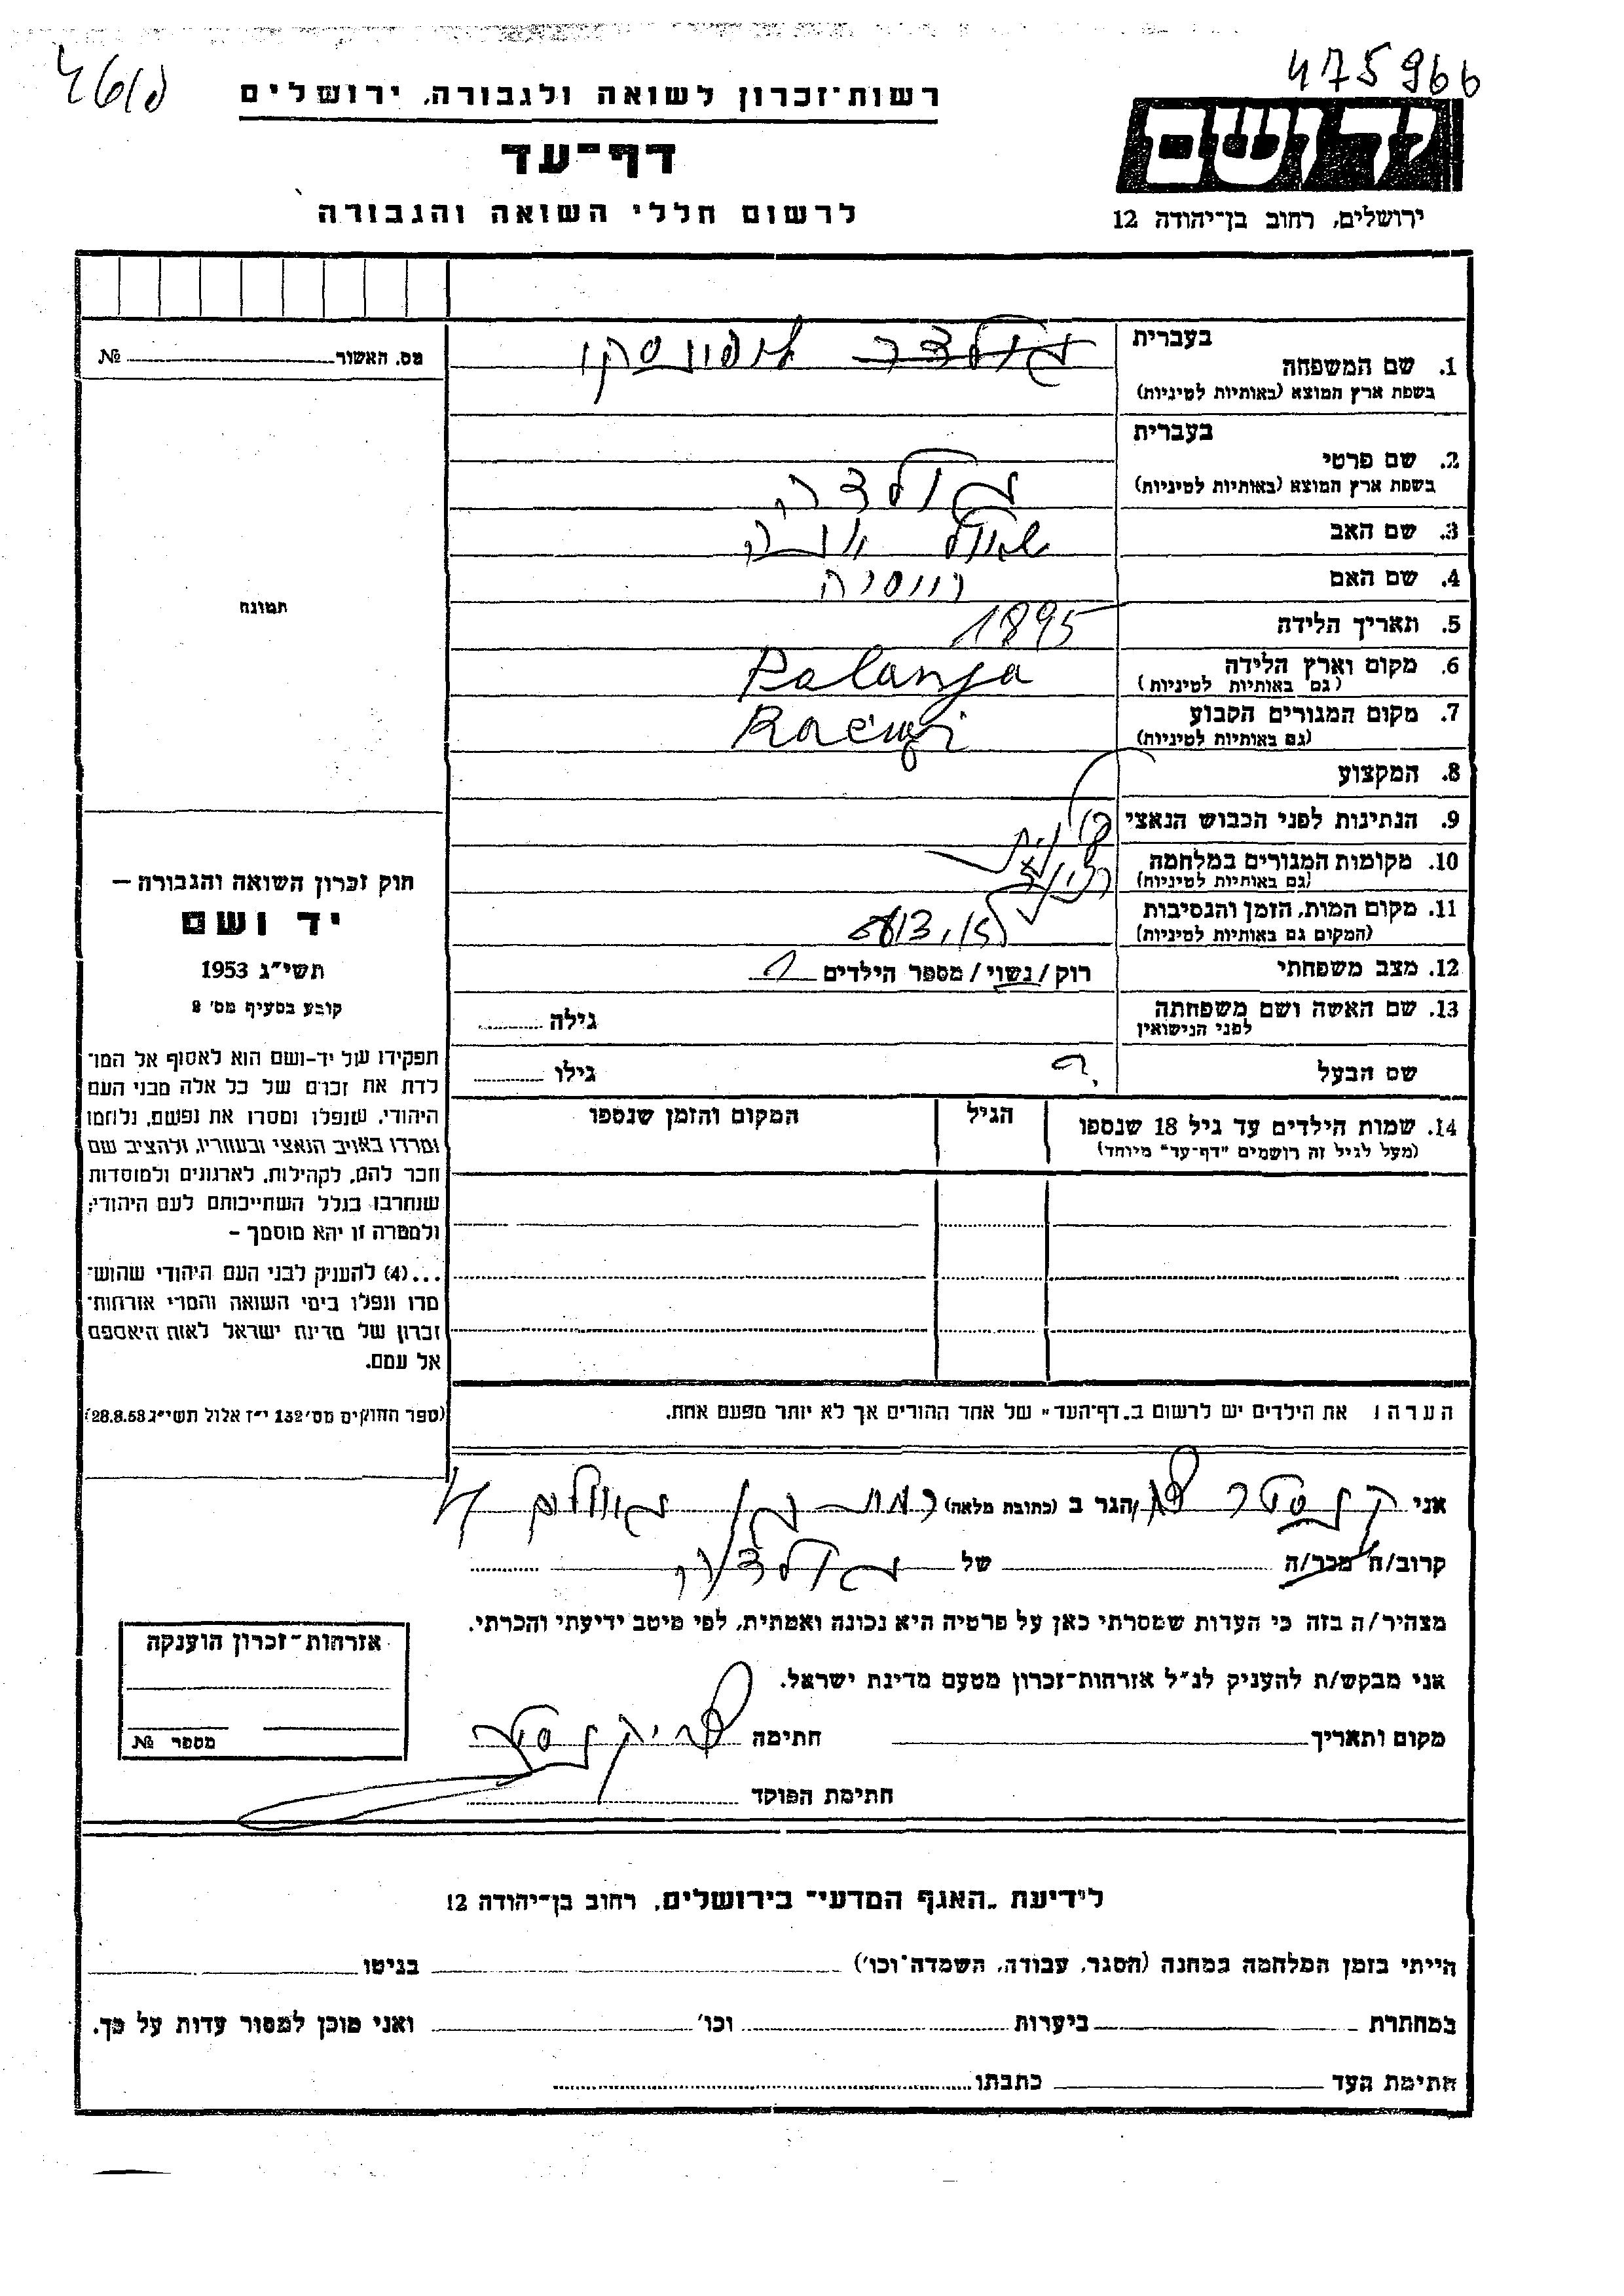 475966
רשות־זכרון לשואה ולגבורה, ירושלים
יד ושם
דף־עד
ירושלים, רחוב בן־יהודה 12
לרשום חללי השואה והגבורה
בעברית
1. שם המשפחה
בשפת ארץ המוצא (באותיות לטיניות)
מס. האשור №
בעברית
2. שם פרטי
בשפת ארץ המוצא (באותיות לטיניות)
גולדה
3. שם האב
4. שם האם
תמונה
5. תאריך הלידה 1895
6. מקום וארץ הלידה
(גם באותיות לטיניות)
7. מקום המגורים הקבוע
(גם באותיות לטיניות)
8. המקצוע
9. הנתינות לפני הכבוש הנאצי
10. מקומות המגורים במלחמה
(גם באותיות לטיניות)
11. מקום המות, הזמן והנסיבות
(המקום גם באותיות לטיניות)
12. מצב משפחתי רוק/נשוי/ מספר הילדים 1
13. שם האשה ושם משפחתה גילה
לפני הנישואין
שם הבעל ? גילו
14. שמות הילדים עד גיל 18 שנספו הגיל המקום והזמן שנספו
(מעל לגיל זה רושמים "דף־עד" מיוחד)
חוק זכרון השואה והגבורה —
יד ושם
תשי״ג 1953
קובע בסעיף מס׳ 2
תפקידו של יד-ושם הוא לאסוף אל המו־
לדת את זכרם של כל אלה מבני העם
היהודי, שנפלו ומסרו את נפשם, נלחמו
ומרדו באויב הנאצי ובעוזריו, ולהציב שם
וזכר להם, לקהילות, לארגונים ולמוסדות
שנחרבו בגלל השתייכותם לעם היהודי;
ולמטרה זו יהא מוסמך –
...(4) להעניק לבני העם היהודי שהוש־
מדו ונפלו בימי השואה והמרי אזרחות־
זכרון של מדינת ישראל לאות היאספם
אל עמם.
(ספר החוקים מס׳ 132 י״ז אלול תשי״ג 28.8.58)
הערה: את הילדים יש לרשום ב„דף־העד" של אחד ההורים אך לא יותר מפעם אחת.
אני הגר ב (כתובת מלאה)
קרוב/ה מכר/ה של גולדה
מצהיר/ה בזה כי העדות שמסרתי כאן על פרטיה היא נכונה ואמתית, לפי מיטב ידיעתי והכרתי.
אני מבקש/ת להעניק לנ״ל אזרחות־זכרון מטעם מדינת ישראל.
מקום ותאריך חתימה
חתימת הפוקד
אזרחות־זכרון הוענקה
מספר №
לידיעת „האגף המדעי" בירושלים, רחוב בן־יהודה 12
הייתי בזמן המלחמה במחנה (הסגר, עבודה, השמדה וכו׳) בגיטו
במחתרת ביערות וכו׳ ואני מוכן למסור עדות על כך.
חתימת העד כתבתו